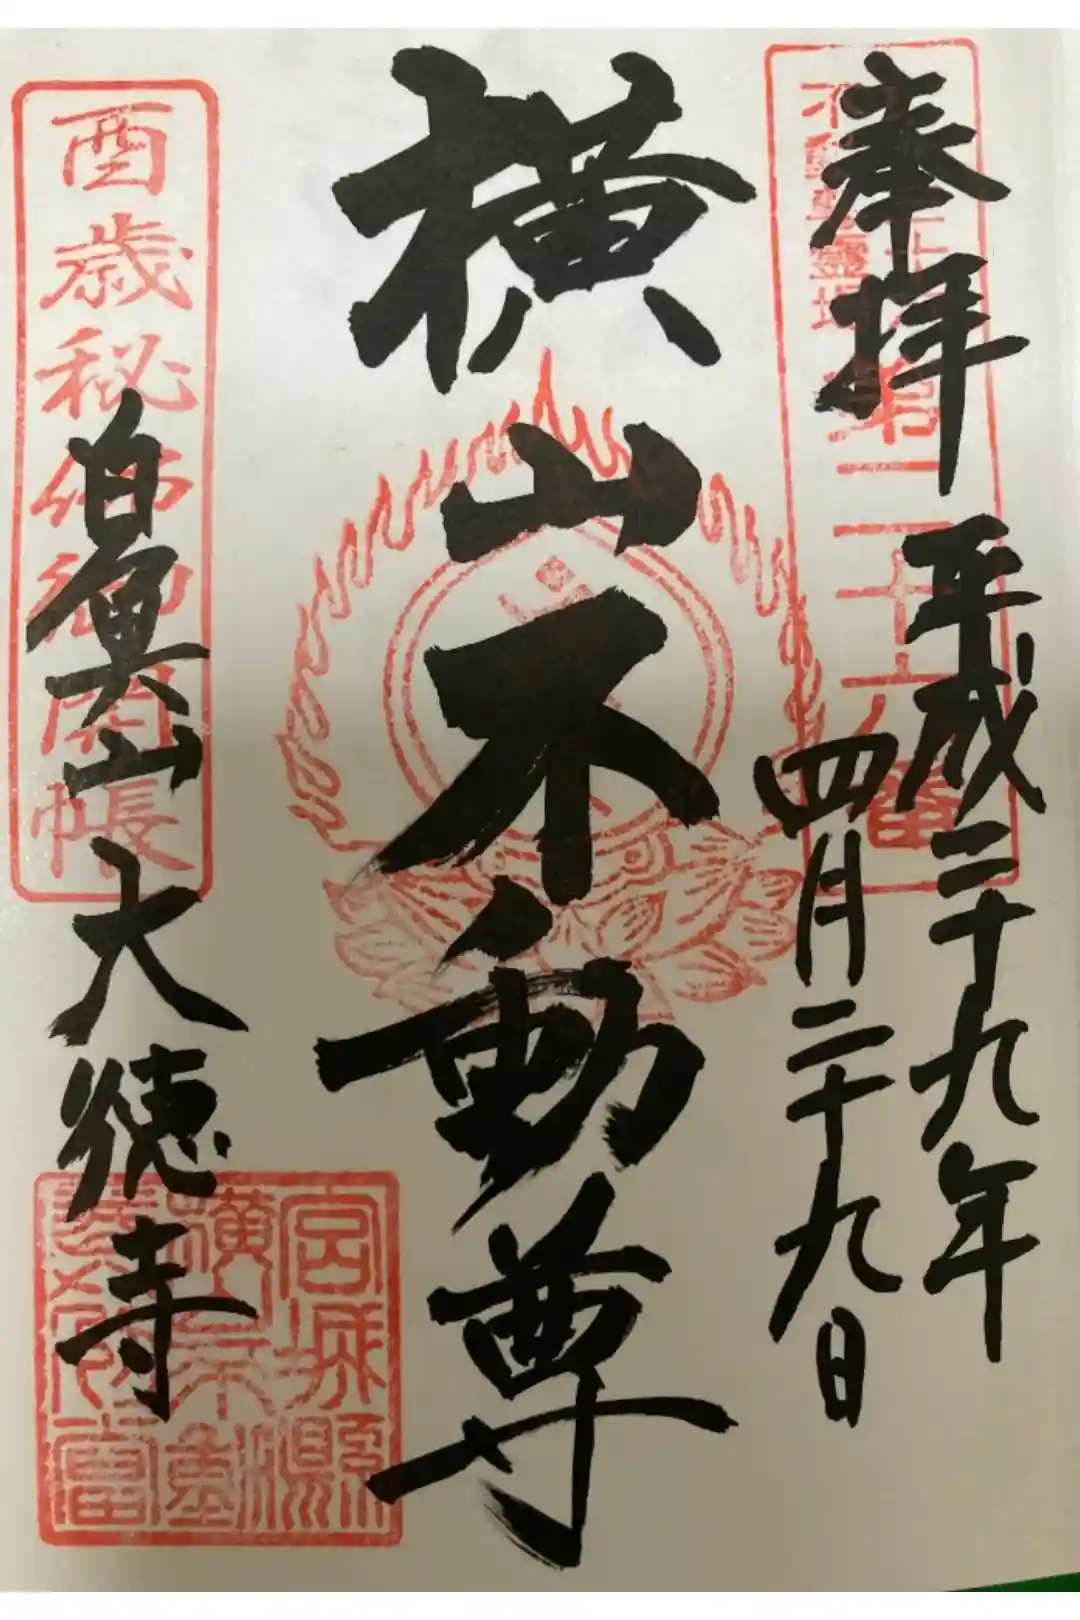 奉拝
平成二十九年
四月二十九日
横山不動尊
白魚山
大徳寺
酉歳秘佛御開帳
第二十七番
宮城縣
横